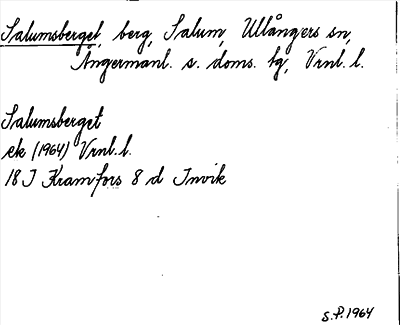 Salumsberget, berg, Salum, Ullångers sn,
Ångermanl. s. doms. hg, Vrnl. l.
Salumsberget
ek (1964) Vrnl. l.
18 I Kramfors 8 d Invik
S.P. 1964